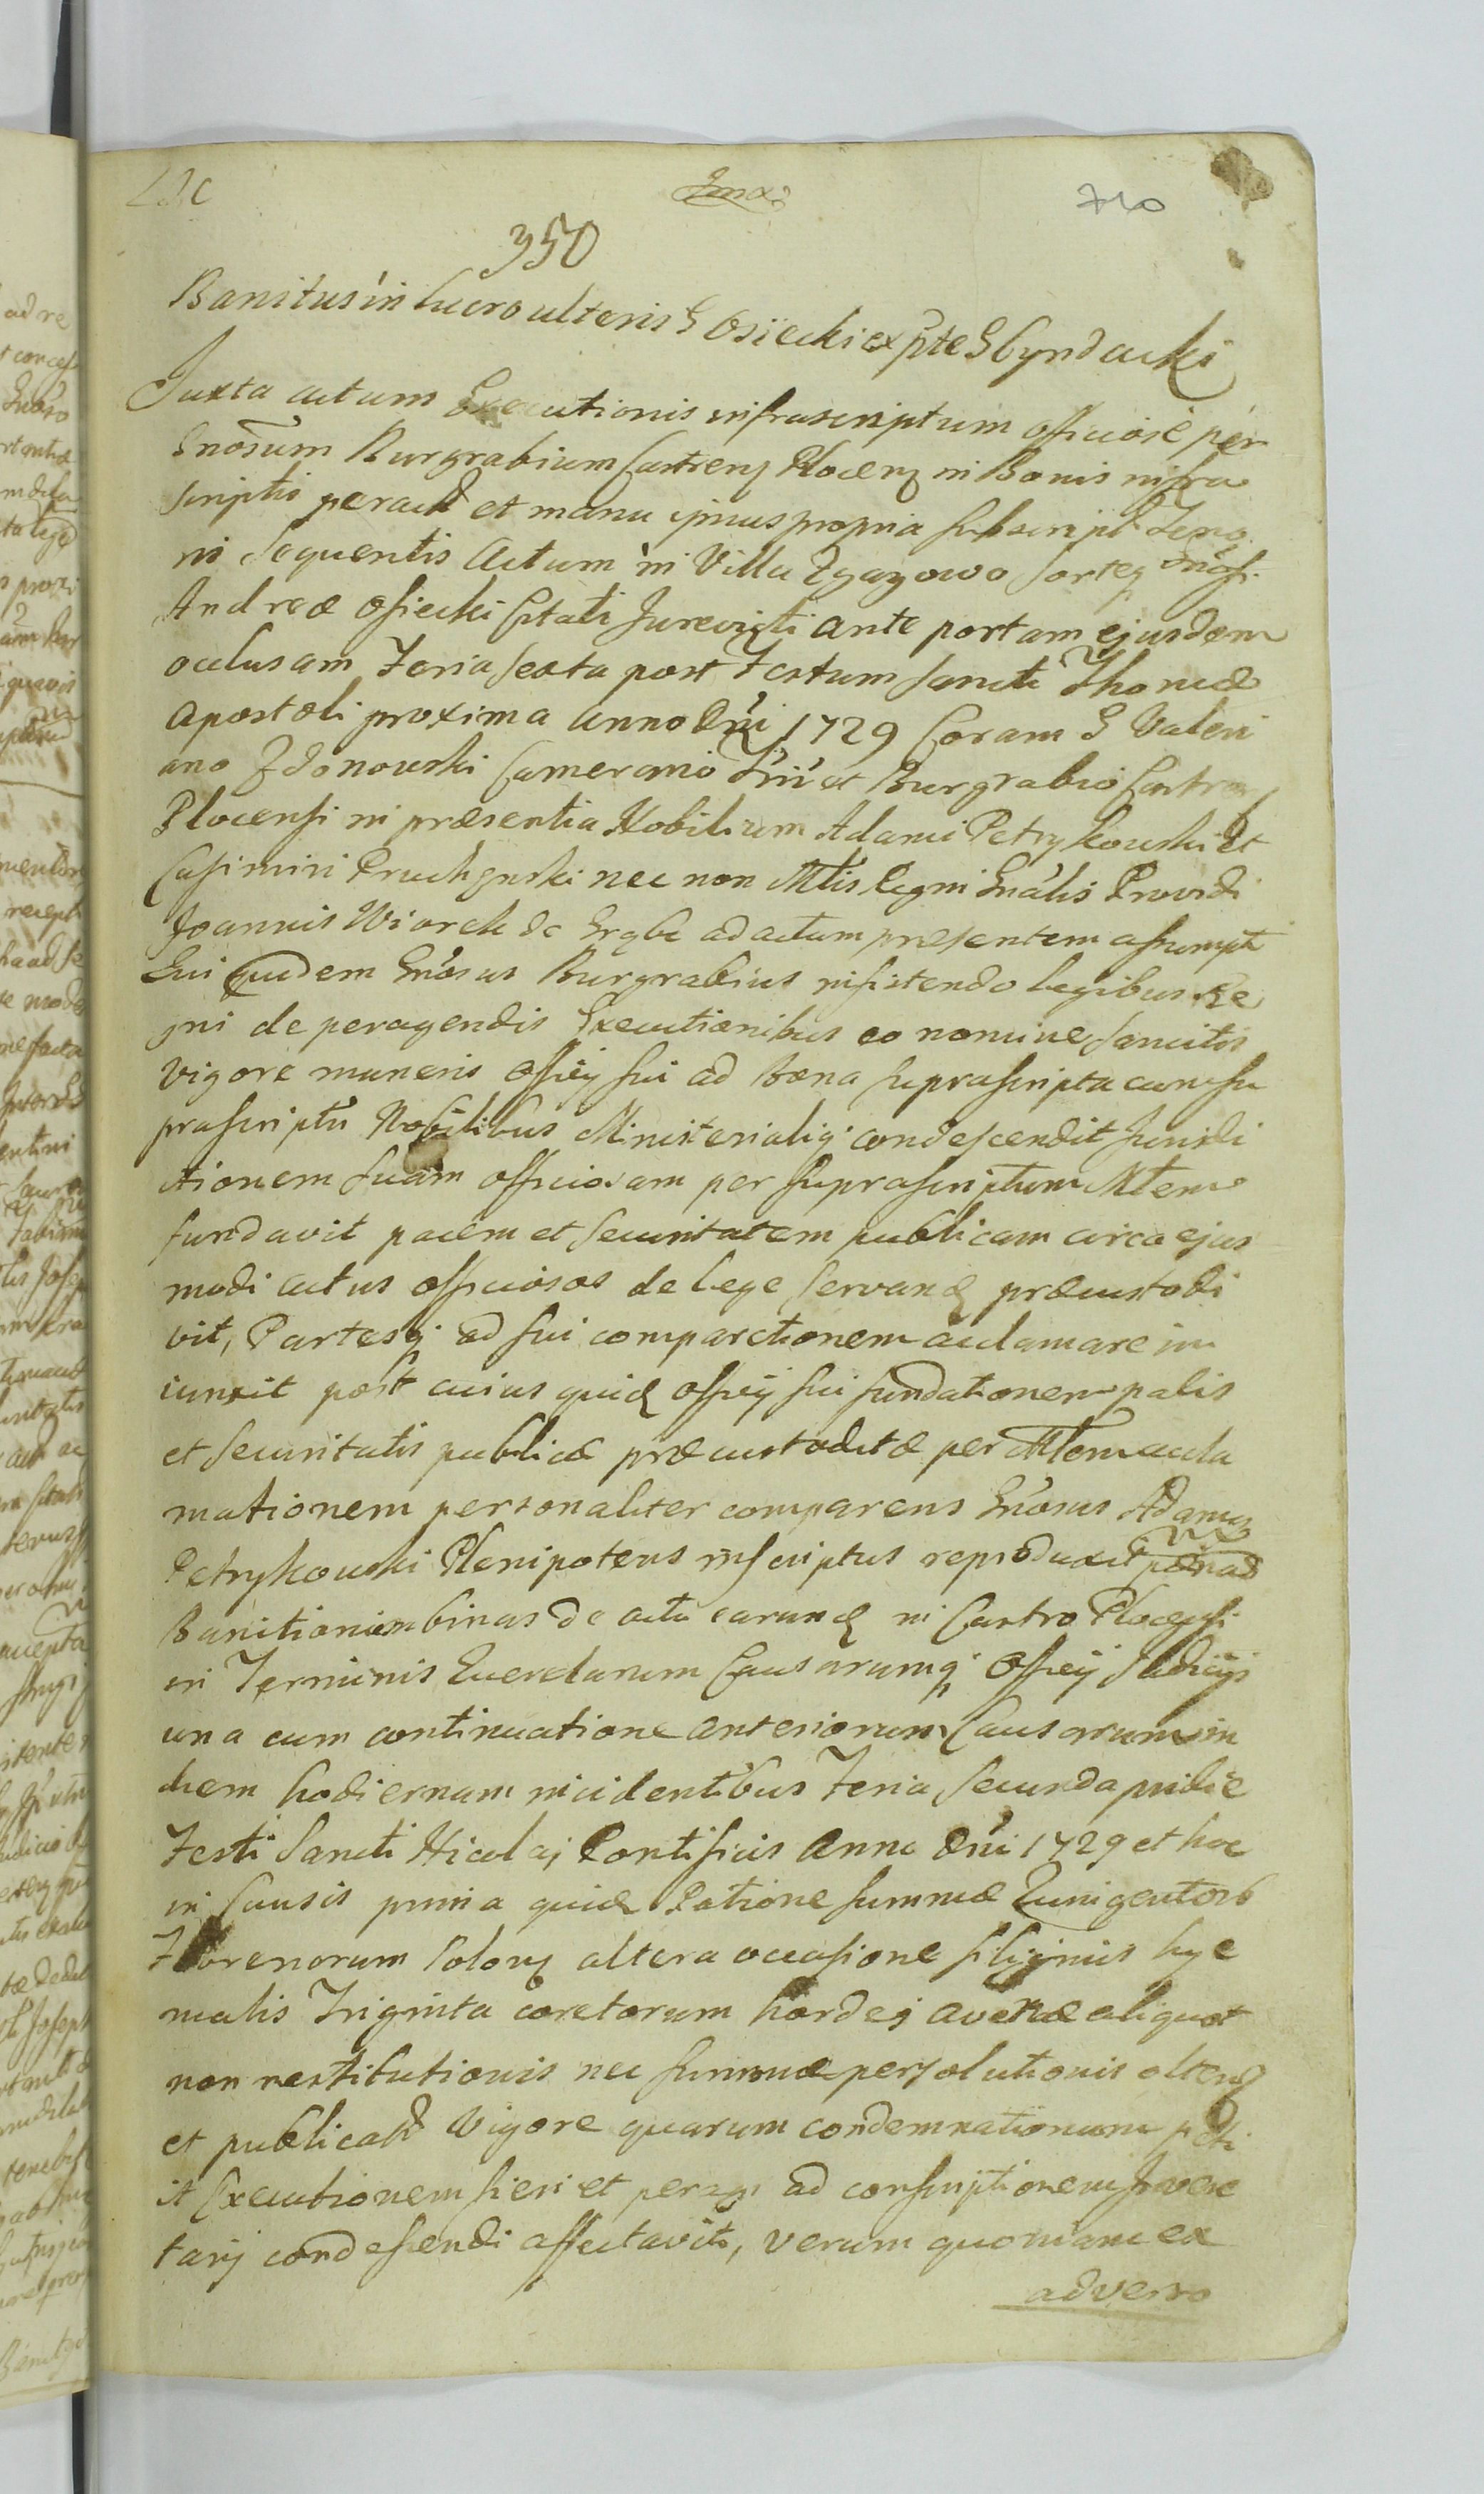 710
350
Banitus in lucro ulteris G Osiecki ex pte G Cyndacki
Juxta actum Executionis infrascriptum officiose per
Gnosum Burgrabium Castren Plocen in Bonis infra
scriptis peract et manu ipsius propria subscript Teno
ris sequentis Actum in Villa Zgazowo sorteq Gnosi
Andreæ Osiecki Citati Jurevicti ante portam ejusdem
oclusam Feria sexta post Festum Sancti Thomæ
Apostoli proxima anno Dni 1729 Coram G Valeri
ano Zdonowski Camerario Trrii et Burgrabio Castren
Plocensi in præsentia Nobilium Adami Petrykowski et
Casimiri Pruchgnski nec non Mtlis Regni Gnalis Providi
Joannis Wiorek de Grąbc ad actum presentem assumpt
Qui quidem Gnosus Burgrabius insistendo legibus Re
gni de peragendis Executionibus eo nomine sancitis
vigore muneris Officij sui ad Bona suprascripta cum su
prascriptis Nobilibus Ministerialiq condescendit Jurisdi
ctionem suam officiosam per suprascriptum Mtlem
fundavit pacem et securitatem publicam circa ejus
modi actus officiosos de lege servand præcustodi
vit, Partesq ad sui comparitionem acclamare in
iunxit post cuius quid Officij sui fundationem pacis
et securitatis publicæ præcustoditæ per Mtlem accla
mationem personaliter comparens Gnosus Adamus
Petrykowski Plenipotens inscriptus reproduxit pœnas
Banitionum binas de actu earund in Castro Plocensi
in Terminis Querelarum Causarumq Officij Judicijs
una cum continuatione anteriorum Causarum in
diem hodiernum incidentibus Feria Secunda pridie
Festi Sancti Nicolaj Pontificis Anno Dni 1729 et hoc
in Causis prima quid Ratione summæ Quingentorb
Florenorum Polon altera occasione siliginis hye
malis Triginta coretorum hordej avenæ aliquot
non restitutionis nec summæ persolutionis obtent
et publicat Vigore quarum condemnationum peti
it Executionem fieri et peragi ad conscriptionem Inven
tarij condescendi affectavit, verum quoniam ex
adverso